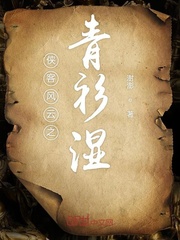 侠客风云之
青衫湿
著